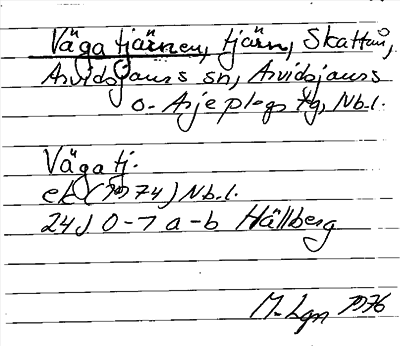 Vägatjärnen, tjärn, Skatteån,
Arvidsjaurs sn, Arvidsjaurs
o. Arjeplogs tg, Nb.l.
Vägatj.
ek (1974) Nb.l.
24J 0-7 a-b Hällberg
M. Lgn 1976